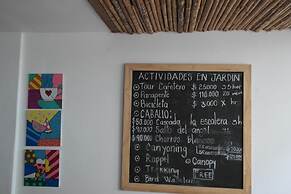 ACTIVIDADES EN JARDIN
Tour Cafetero $ 25000
Parapente $ 110.000
Bicicleta $ 3000 x hr
CABALLO:
$50.000 Cascada la escalera 3h
$90.000 Salto del angel
$90.000 Chorros
Canyoning
Rappel Canopy
Trekking FREE
Bird